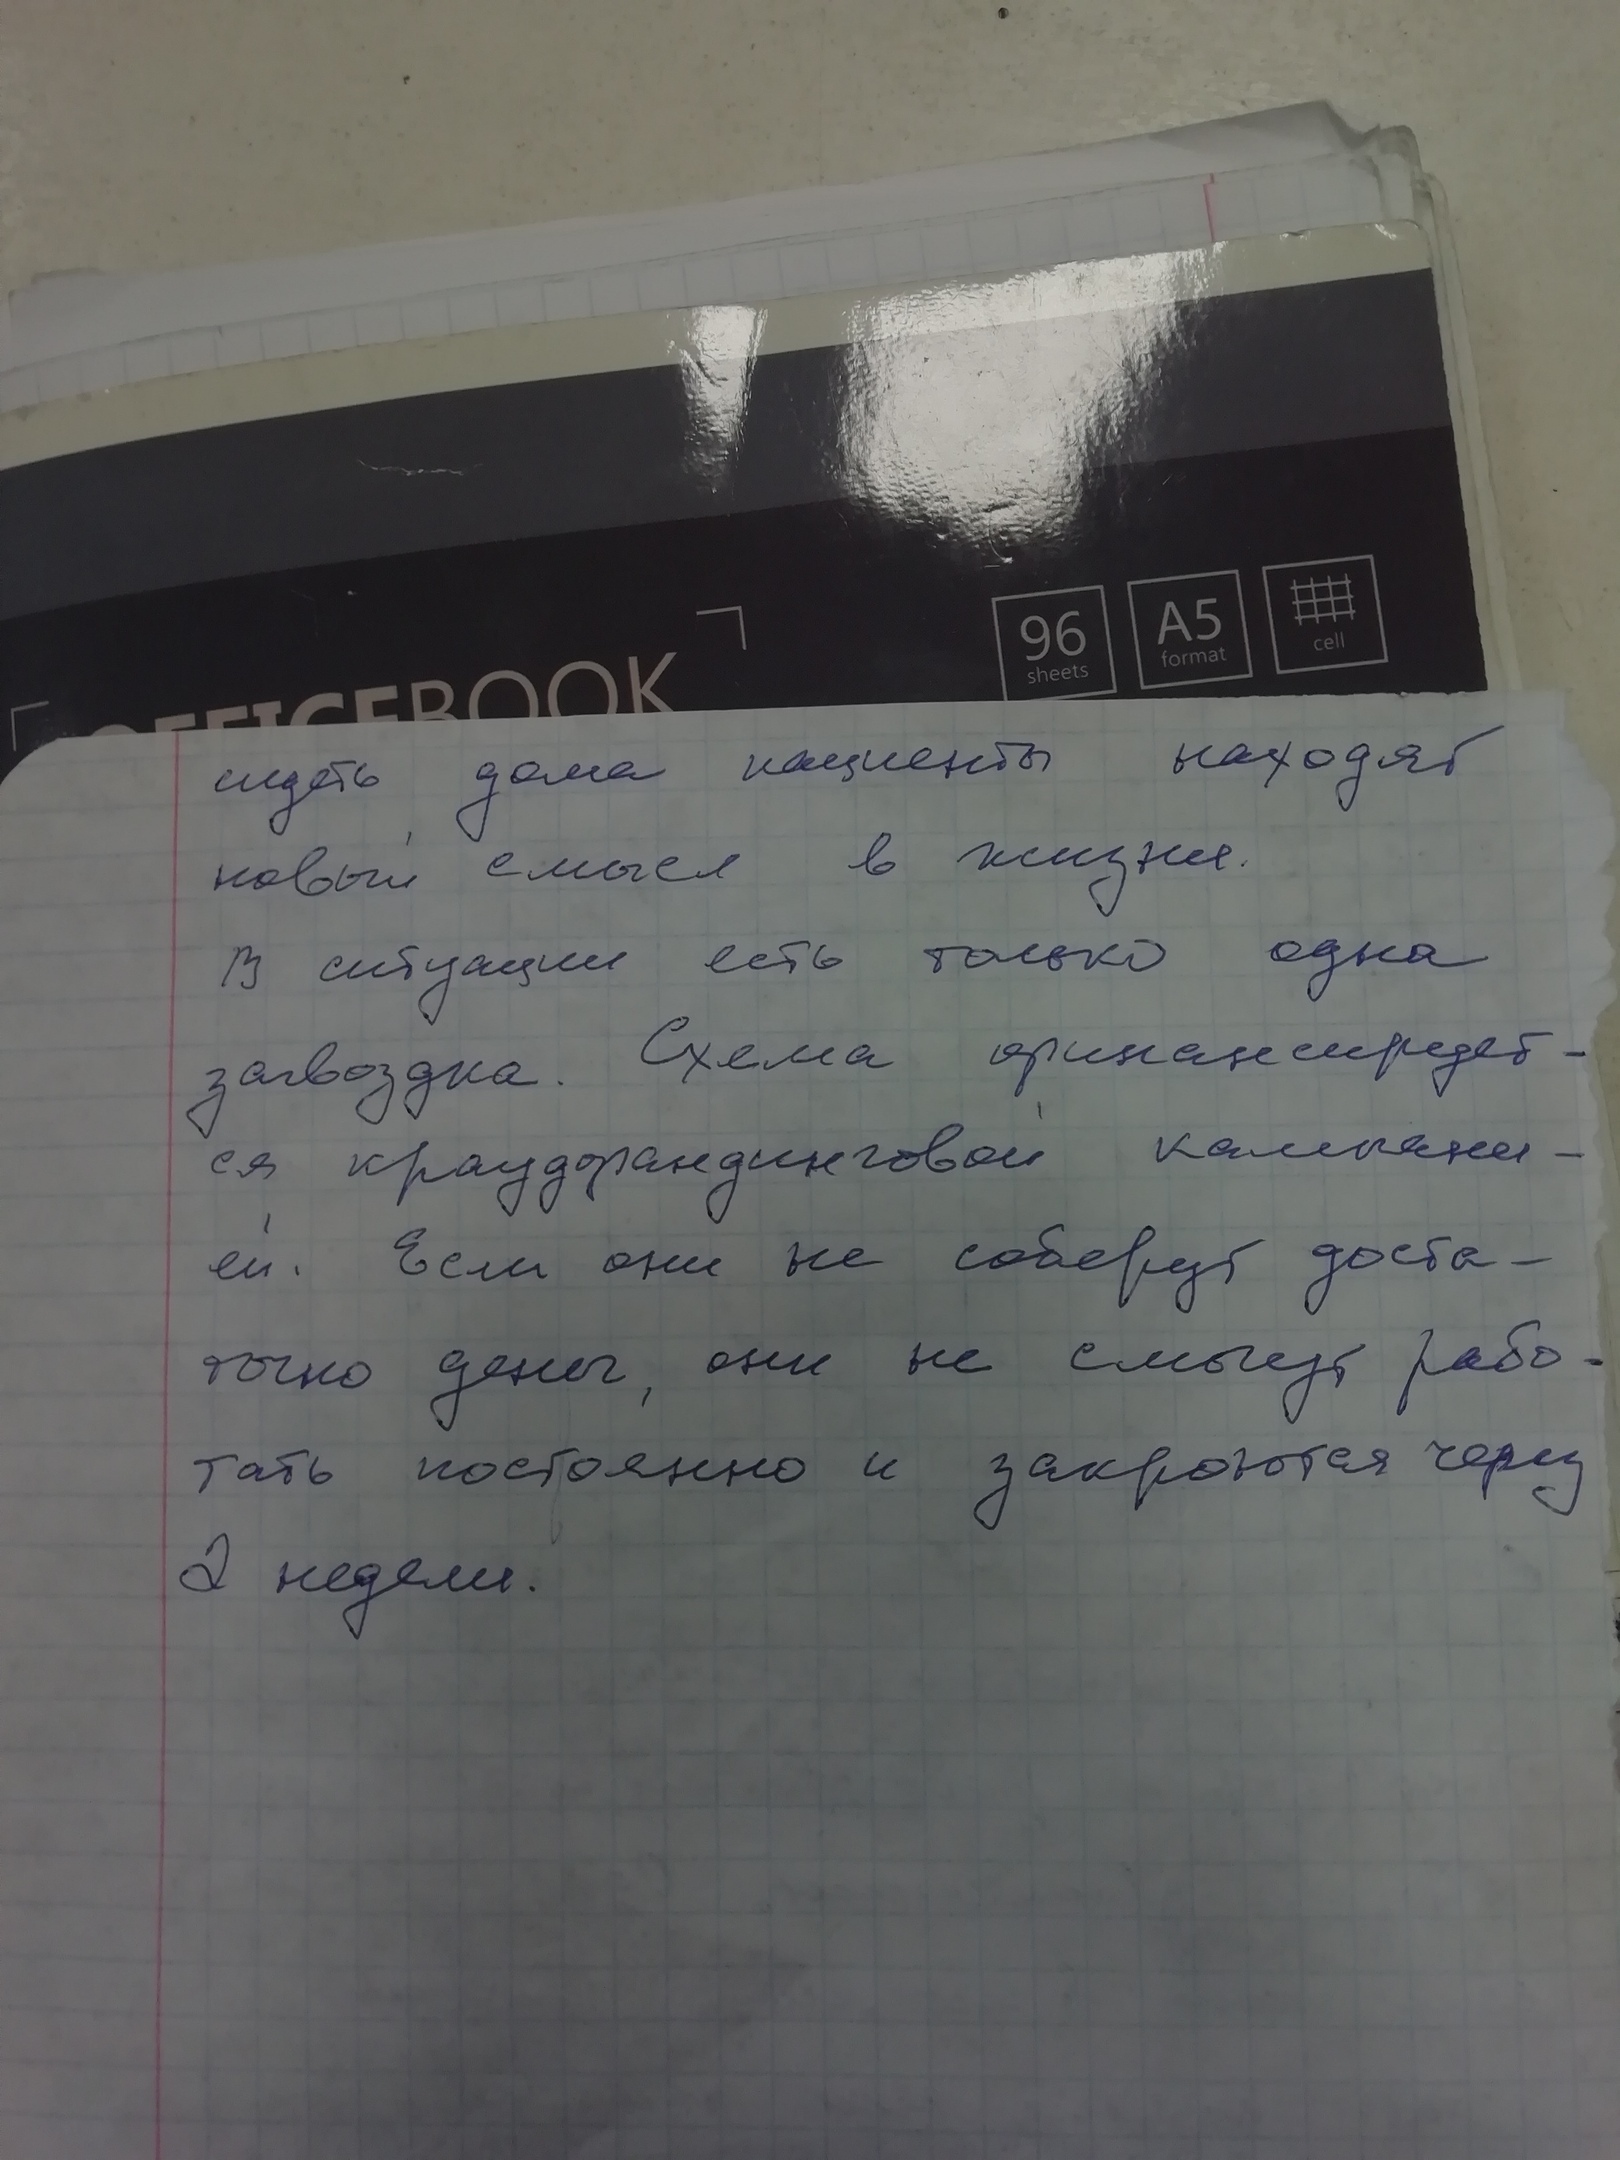 96
sheets
A5
format
cell
OFFICEBOOK
сидеть дома пациенты находят
новый смысл в жизни.
В ситуации есть только одна
загвоздка. Схема финансирует-
ся краудфандинговой кампани-
ей. Если они не соберут доста-
точно денег, они не смогут рабо-
тать постоянно и закроются через
2 недели.